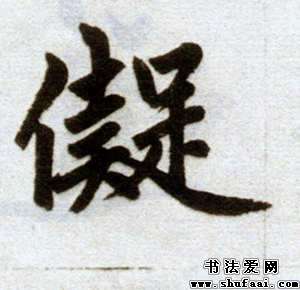 儗
书法爱网
www.shufaai.com